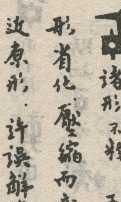 諸形不
形省化壓縮而
近原形．許誤解